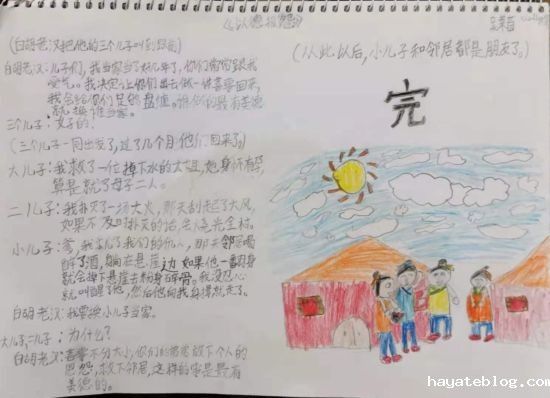 《以德报怨》
(白胡老汉把他的三个儿子叫到跟前)
白胡老汉:儿子们,我当家当了好几年了,你们常常跟我
受气。我决定让你们出去做一件善事回来,
我会给你们足够盘缠。谁做的最有美德
就换谁当家。
三个儿子:好的!
(三个儿子一同出发了,过了几个月他们回来了。)
大儿子:我救了一位掉下水的大姐,她身怀有孕,
算是救了母子二人。
二儿子:我扑灭了一场大火,那天刮起了大风,
如果不及时扑灭的话,会烧光全村。
小儿子:爹,我救了我们的仇人,那天邻居喝
醉了酒,躺在悬崖边,如果他一翻身
就会掉下悬崖去粉身碎骨。我没忍心
就叫醒了他,然后他向我
白胡老汉:我要换小儿子当家。
大儿子,二儿子:为什么?
白胡老汉:善事不分大小,你们能放下个人的
恩怨,救下邻居,这样的事是最有
美德的。
(从此以后,小儿子和邻居都是朋友了。)
完
hayateblog.com